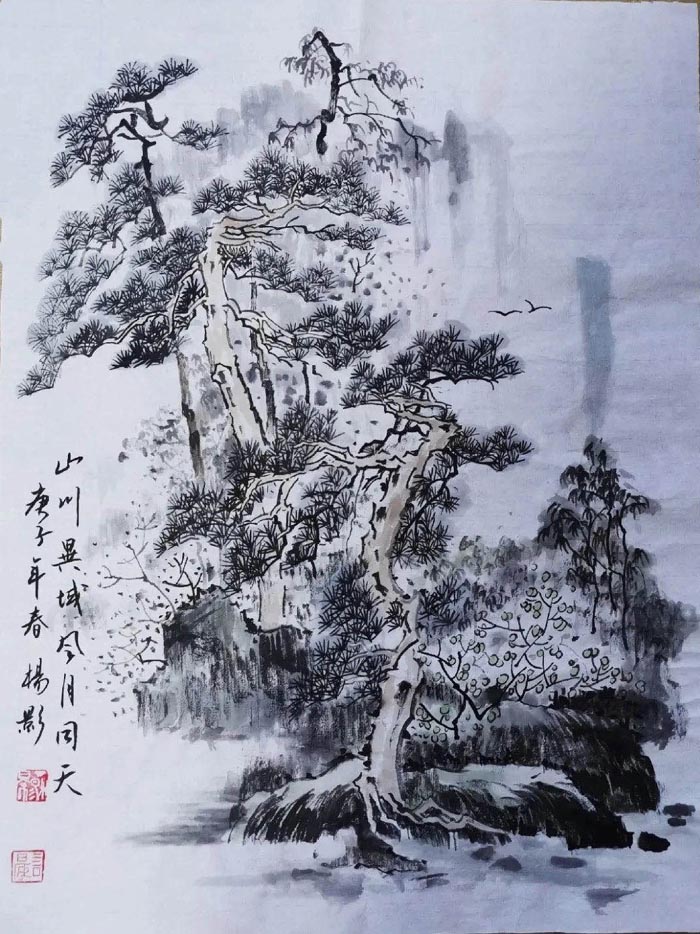 山川異域风月同天
庚子年春楊影